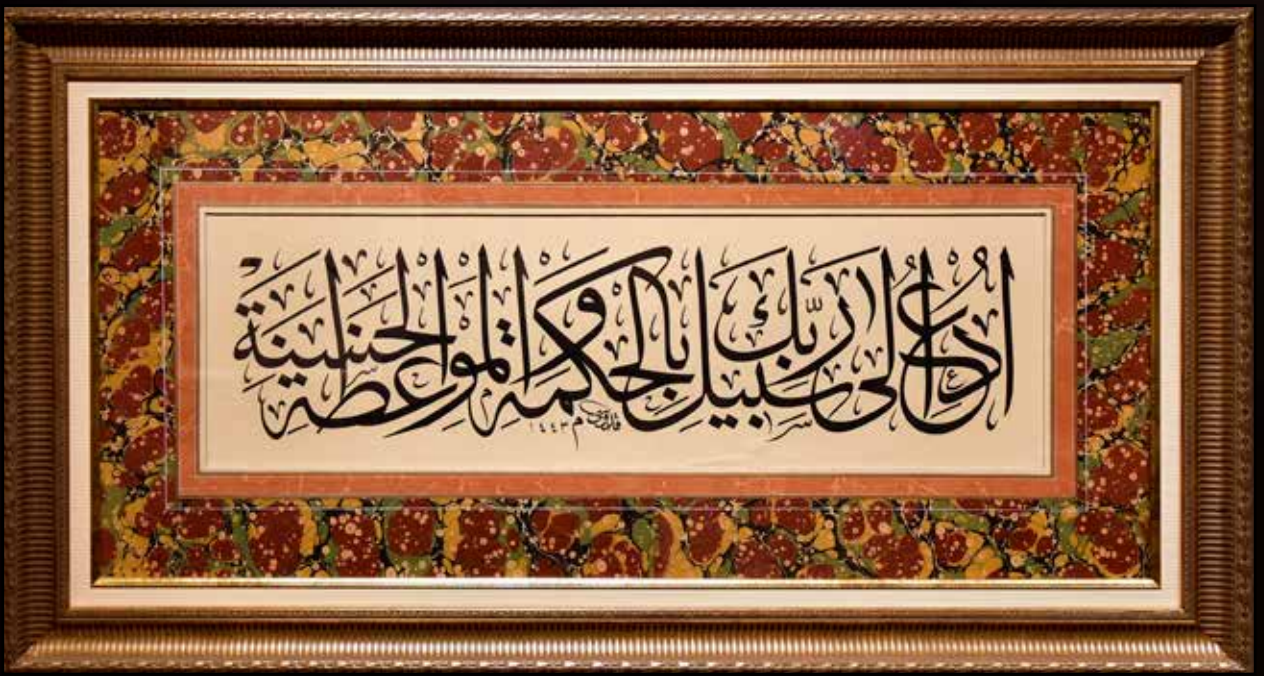 ادع إلى سبيل ربك بالحكمة والموعظة الحسنة
١٤٤٣